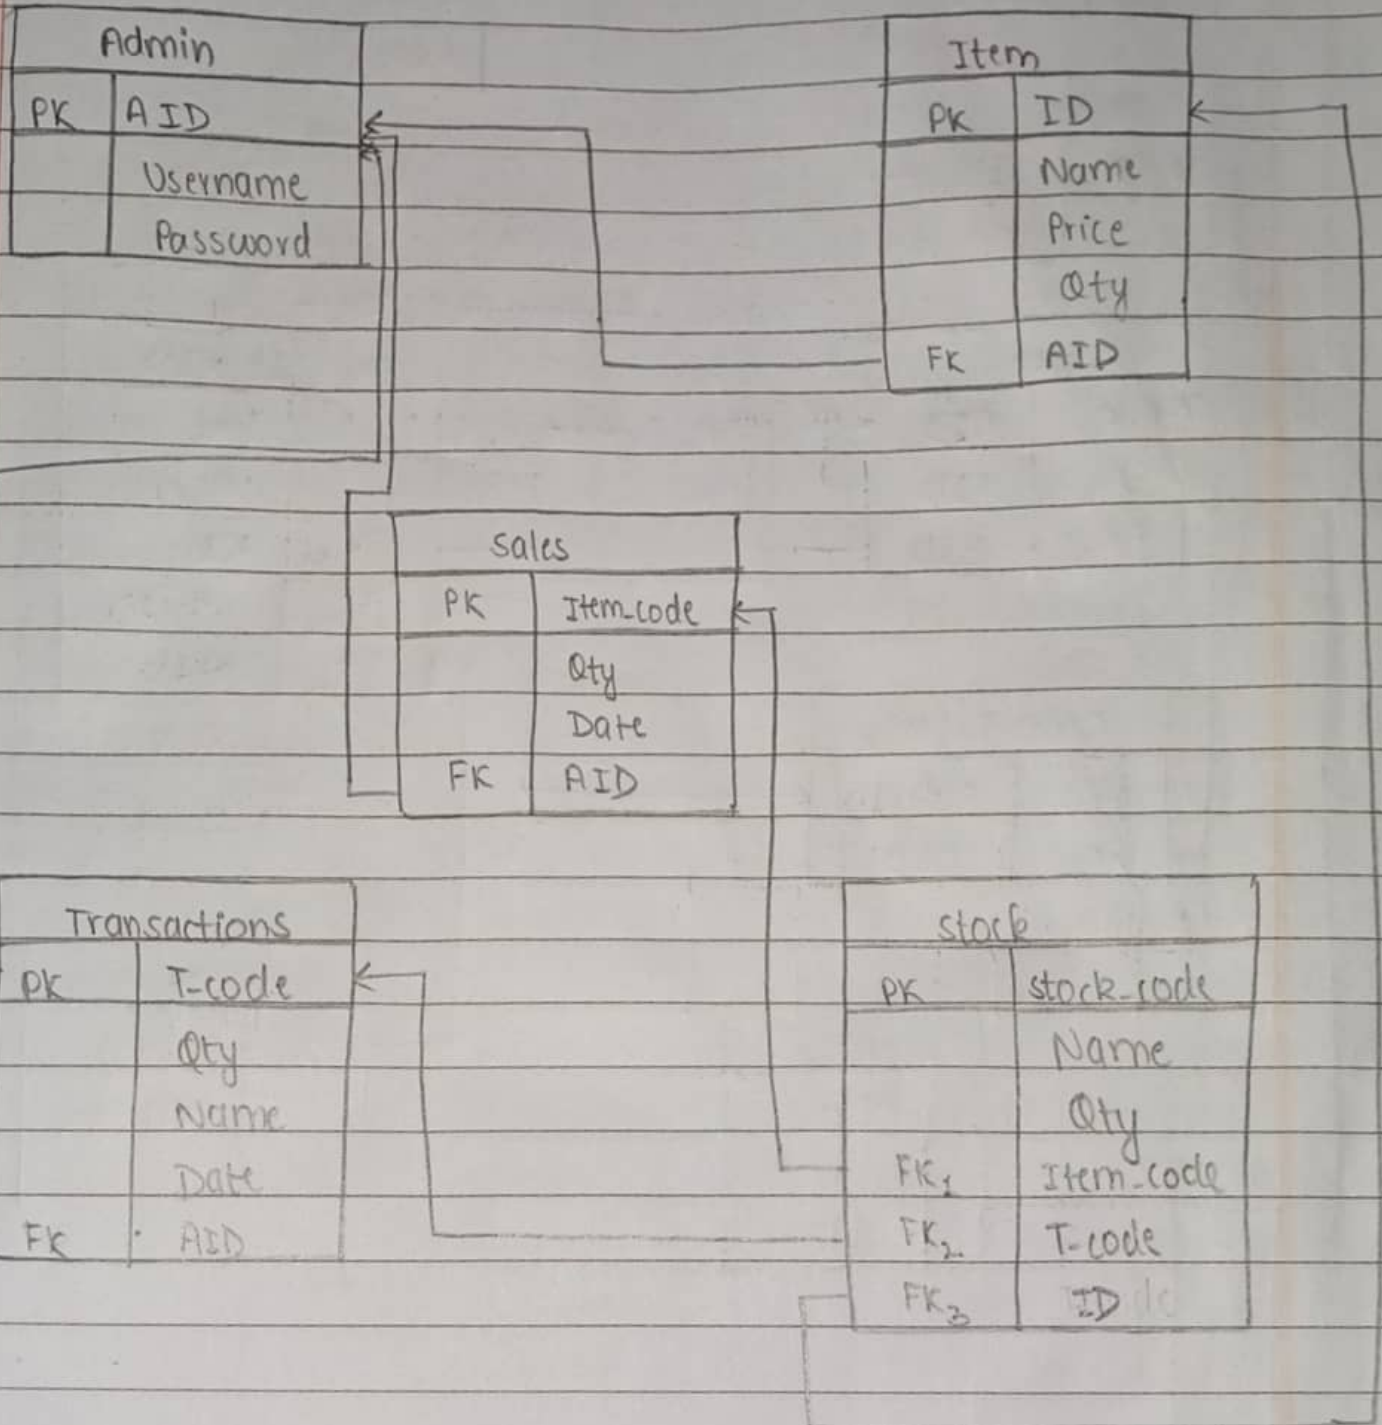 Admin
PK AID
Username
Password
Item
PK ID
Name
Price
Qty
FK AID
Sales
PK Item_code
Qty
Date
FK AID
Transactions
PK T-code
Qty
Name
Date
FK AID
stock
PK stock_code
Name
Qty
FK1 Item_code
FK2 T-code
FK3 ID